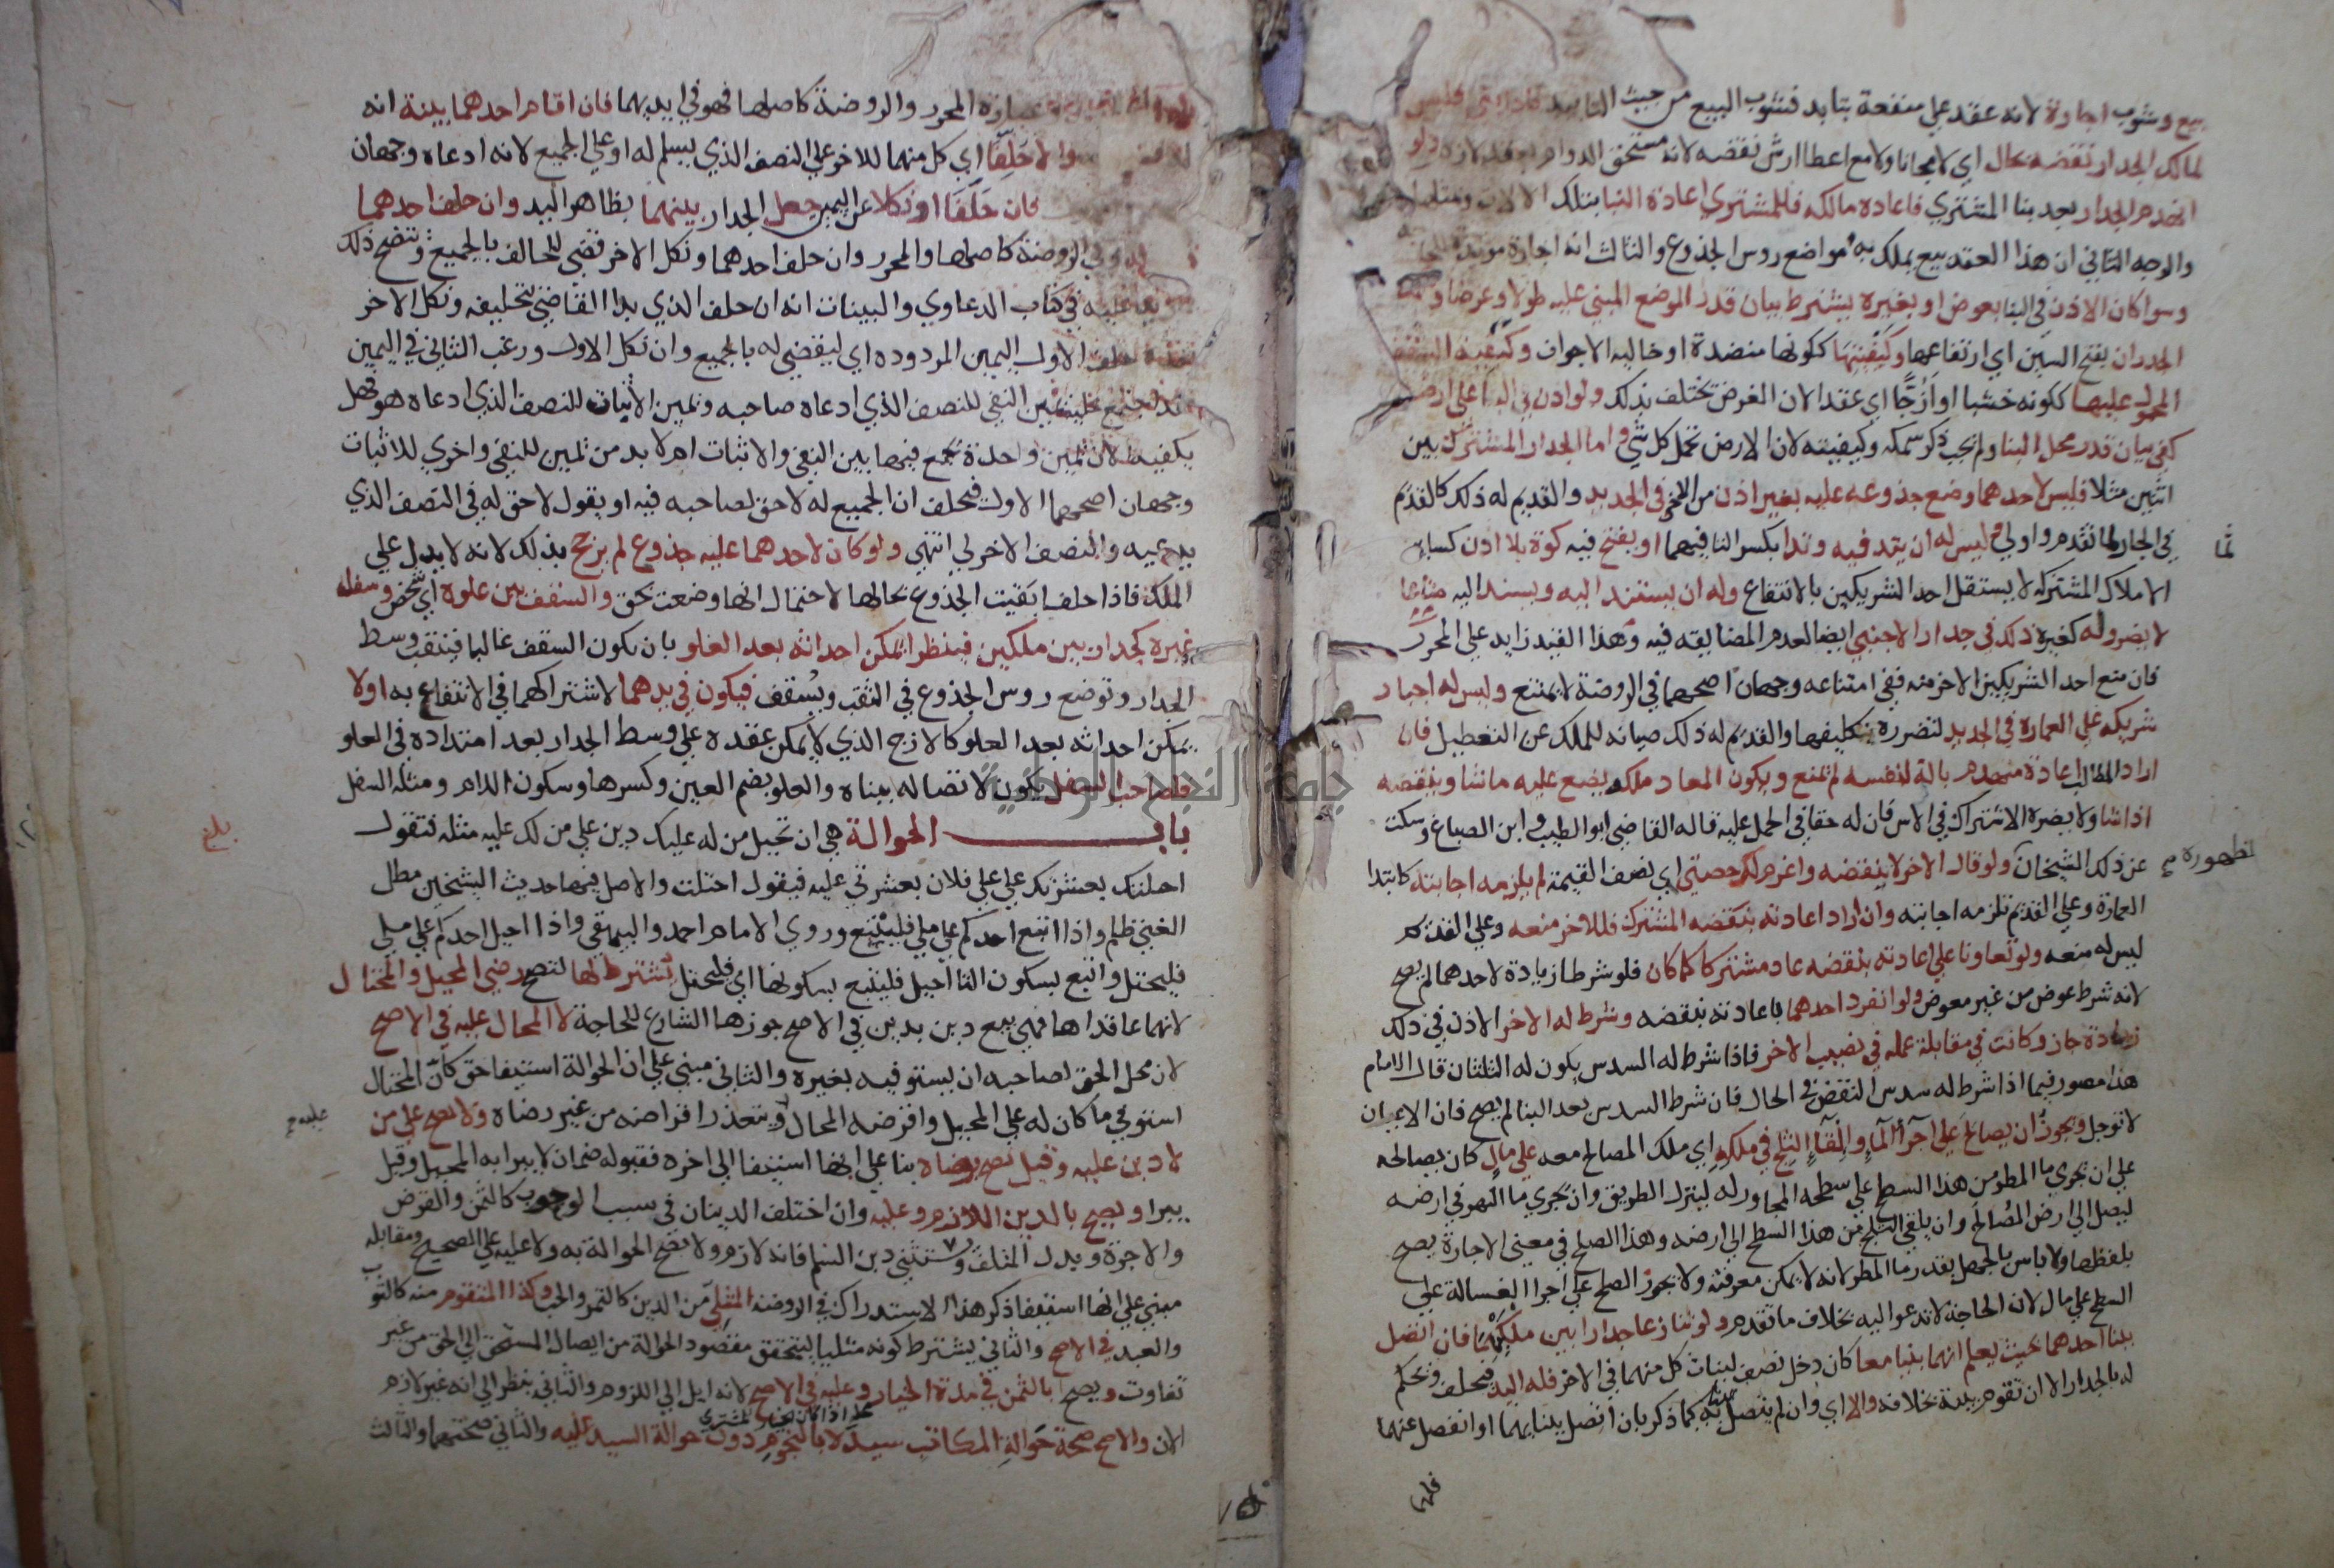 بيع وشوب اجارة لانه عقد علي منفعة بتابد فشوب البيع من حيث التابيد فاذا بني فليس
لمالك الجدار نقضه بحال اي لا مجانا ولا مع اعطا ارش نقضه لانه مستحق الدوام بعقد لازم ولو
انهدم الجدار بعد بنا المشتري فاعاده مالكه فللمشتري اعادة البنا بتلك الالات ومثلها
والوجه الثاني ان هذا العقد بيع يملك به مواضع روس الجذوع والثالث انه اجارة موبدة
وسوا كان الاذن في البنا بعوض او بغيره يشترط بيان قدر الموضع المبني عليه طولا وعرضا و
الجدران بفتح السين اي ارتفاعها وكيفيتها ككونها منضدة او خالية الاجواف وكيفية السقف
المحمول عليها ككونه خشبا او ازجا اي عقدا لان الغرض تختلف بذلك ولو اذن في البنا علي ارض
كفي بيان قدر محل البنا ولم يجب ذكر سمكه وكيفيته لان الارض تحمل كل شي واما الجدار المشترك بين
اثنين مثلا فليس لاحدهما وضع جذوعه عليه بغير اذن من الاخر في الجديد والقديم له ذلك كالقديم
في الجار لما تقدم واولي وليس له ان يتد فيه وتدا بكسر التا فيهما او يفتح فيه كوة بلا اذن كساير
الاملاك المشتركة لا يستقل احد الشريكين بالانتفاع وله ان يستند اليه ويسند اليه متاعا
لا يضر وله كغيره ذلك في جدار الاجنبي ايضا لعدم المضايقه فيه وهذا القيد زايد علي المحرر
فان منع احد الشريكين الاخر منه ففي امتناعه وجهان اصحهما في الروضة لا يمتنع وليس له اجبار
شريكه علي العمارة في الجديد لتضرره بتكليفها والقديم له ذلك صيانه للملك عن التعطيل فان
اراد الطالب اعادة منهدم بالة لنفسه لم يمنع ويكون المعاد ملكه يضع عليه ما شا وينقضه
اذا شا ولا يضره الاشتراك في الاس فان له حقا في الحمل عليه قاله القاضي ابو الطيب وابن الصباغ وسكت
عن ذلك الشيخان ولو قال الاخر لا ينقضه واغرم لك حصتي اي نصف القيمة لم يلزمه اجابته كابتدا
العمارة وعلي القديم تلزمه اجابته وان اراد اعادته بنقضه المشترك فللاخر منعه وعلي القديم
ليس له منعه ولو تعاونا علي اعادته بنقضه عاد مشتركا كما كان فلو شرطا زيادة لاحدهما لم يصح
لانه شرط عوض من غير معوض ولو انفرد احدهما باعادته بنقضه وشرط له الاخر الاذن في ذلك
زيادة جاز وكانت في مقابلة عمله في نصيب الاخر فاذا شرط له السدس يكون له الثلثان قال الامام
هذا مصور فيما اذا شرط له سدس النقض في الحال فان شرط السدس بعد البنا لم يصح فان الاعيان
لا توجل ويجوز ان يصالح علي اجرا المآ والقآ الثلج في ملكه اي ملك المصالح معه علي مال كان يصالحه
علي ان يجري ما المطر من هذا السطح علي سطحه المجاور له لينزل الطريق وان يجري ما النهر في ارضه
ليصل الي ارض المصالح وان يلقي الثلج من هذا السطح الي ارضه وهذا الصلح في معني الاجارة يصح
بلفظها ولا باس بالجهل بقدر ما المطر لانه لا يمكن معرفته ولا يجوز الصلح علي اجرا الغسالة علي
السطح علي مال لان الحاجة لا تدعو اليه بخلاف ما تقدم ولو تنازعا جدارا بين ملكيهما فان اتصل
ببنا احدهما بحيث يعلم انهما بنيا معا كان دخل نصف لبنات كل منهما في الاخر فله اليد فيحلف ويحكم
له بالجدار الا ان تقوم بينة بخلافه والا اي وان لم يتصل كما ذكر بان اتصل ببنايهما او انفصل عنهما
لظهوره
فلهما
المحرر والروضة كاصلها فهو في ايديهما فان اقام احدهما بينة انه
والا حلفا اي كل منهما للاخر علي النصف الذي يسلم له او علي الجميع لانه ادعاه وجهان
فان حلفا او نكلا عن اليمين جعل الجدار بينهما بظاهر اليد وان حلف احدهما
وفي الروضة كاصلها والمحرر وان حلف احدهما ونكل الاخر قضي للحالف بالجميع وتتضح ذلك
في كتاب الدعاوي والبينات انه ان حلف الذي بدا القاضي بتحليفه ونكل الاخر
بعده حلف الاول اليمين المردوده اي ليقضي له بالجميع وان نكل الاول ورغب الثاني في اليمين
فقد اجتمع عليه يمين النفي للنصف الذي ادعاه صاحبه ويمين الاثبات للنصف الذي ادعاه هو فهل
يكفيه الان يمين واحدة يجمع فيها بين النفي والاثبات ام لا بد من يمين للنفي واخري للاثبات
وجهان اصحهما الاول فيحلف ان الجميع له لا حق لصاحبه فيه او يقول لا حق له في النصف الذي
يدعيه والنصف الاخر لي انتهي ولو كان لاحدهما عليه جذوع لم يرجح بذلك لانه لا يدل علي
الملك فاذا حلفا بقيت الجذوع بحالها لاحتمال انها وضعت بحق والسقف بين علوه اي شخص وسفل
غيره كجدار بين ملكين فينظر ايمكن احداثه بعد العلو بان يكون السقف عاليا فينقب وسط
الجدار وتوضع روس الجذوع في الثقب ويسقف فيكون في يدهما لاشتراكهما في الانتفاع به اولا
يمكن احداثه بعد العلو كالازج الذي لا يمكن عقده علي وسط الجدار بعد امتداده في العلو
فلصاحب السفل يكون لاتصاله ببناه والعلو بضم العين وكسرها وسكون اللام ومثله السفل
باب الحوالة هي ان تحيل من له عليك دين علي من لك عليه مثله فتقول
احلتك بعشرتك علي علي فلان بعشرتي عليه فيقول احتلت والاصل فيها حديث الشيخين مطل
الغني ظلم واذا اتبع احدكم علي ملي فليتبع وروي الامام احمد والبيهقي واذا احيل احدكم علي ملي
فليحتل واتبع بسكون التا احيل فليتبع بسكونها اي فليحتل يشترط لها لتصح رضي المحيل والمحتال
لانهما عاقداها فهي بيع دين بدين في الاصح جوزها الشارع للحاجة لا المحال عليه في الاصح
لان محل الحق لصاحبه ان يستوفيه بغيره والثاني مبني علي ان الحوالة استيفا حق كان المحتال
استوفي ما كان له علي المحيل واقرضه المحال ويتعذر اقراضه من غير رضاه ولا تصح علي من
لا دين عليه وقيل تصح برضاه بنا علي انها استيفا الي اخره فقبوله ضمان لا يبرا به المحيل وقيل
يبرا ويصح بالدين اللازم وعليه وان اختلف الدينان في سبب الوجوب كالثمن والقرض
والاجرة وبدل المتلف ويستثني دين السلم فانه لازم ولا تصح الحوالة به ولا عليه علي الصحيح ومقابله
مبني علي انها استيفا ذكر هذا الاستدراك في الروضة المثلي من الدين كالثمر والحب وكذا المتقوم منه كالثوب
والعبد في الاصح والثاني يشترط كونه مثليا ليتحقق مقصود الحوالة من ايصال المستحق الي الحق من غير
تفاوت ويصح بالثمن في مدة الخيار وعليه في الاصح لانه ايل الي اللزوم والثاني ينظر الي انه غير لازم
الان والاصح صحة حوالة المكاتب سيده بالنجوم دون حوالة السيد عليه والثاني صحتهما والثالث
بلغ
عليه
جامعة النجاح الوطنية